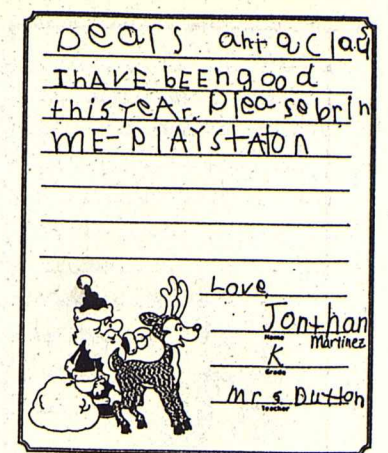 Dears antaclaus
I hAVE bEEn good
this yeAr. Please brin
ME- PlAYstAton
Love
Jonthan
Martinez
Name
K
Grade
Mrs Dutton
Teacher